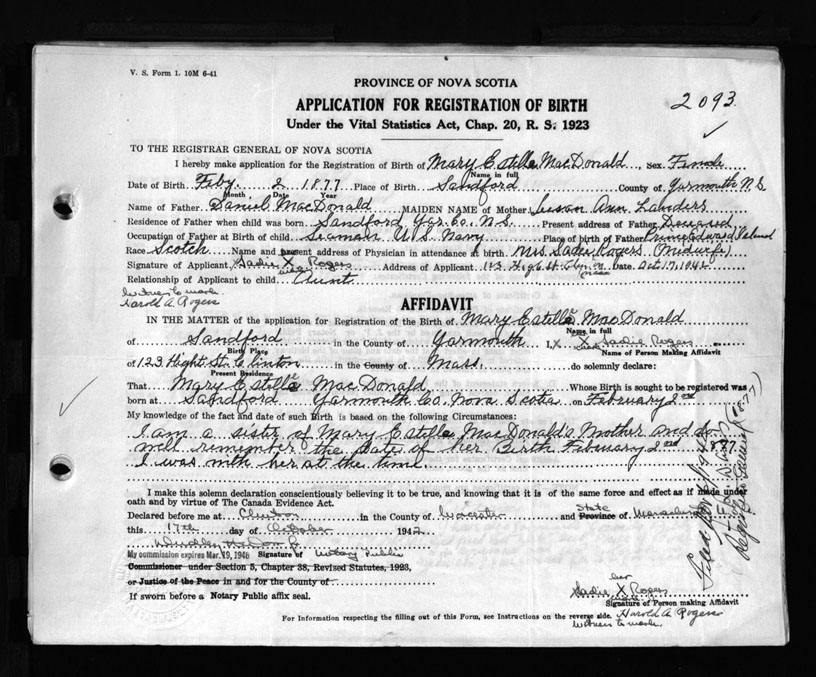 V. S. Form 1. 10M 6-41
PROVINCE OF NOVA SCOTIA
APPLICATION FOR REGISTRATION OF BIRTH
2093
Under the Vital Statistics Act, Chap. 20, R. S. 1923
TO THE REGISTRAR GENERAL OF NOVA SCOTIA
I hereby make application for the Registration of Birth of Mary Estelle MacDonald, Sex Female
Name in full
Date of Birth Feby. 2 1877 Place of Birth Sandford County of Yarmouth N.S.
Month Date Year
Name of Father Daniel MacDonald MAIDEN NAME of Mother Susan Ann Landers
Residence of Father when child was born Sandford Yar. Co. N.S. Present address of Father Deceased
Occupation of Father at Birth of child Seaman U.S. Navy Place of birth of Father Prince Edward Island
Race Scotch Name and present address of Physician in attendance at birth Mrs Sadie Rogers (Midwife)
Signature of Applicant Sadie X Rogers Address of Applicant 123 High St. Mass Date Oct 17, 1942
Relationship of Applicant to child Aunt
Witness to mark
Harold A. Rogers
AFFIDAVIT
IN THE MATTER of the application for Registration of the Birth of Mary Estelle MacDonald
Name in full
of Sandford in the County of Yarmouth I, X Sadie Rogers
Birth Place Name of Person Making Affidavit
of 123 Hight St. Clinton in the County of Mass. do solemnly declare:
Present Residence
That Mary Estelle MacDonald Whose Birth is sought to be registered was
born at Sandford Yarmouth Co. Nova Scotia on February 2nd 1877
My knowledge of the fact and date of such Birth is based on the following Circumstances:
I am a sister of Mary Estelle MacDonald's Mother and do
well remember the Date of her Birth February 2nd
I was with her at the time.
I make this solemn declaration conscientiously believing it to be true, and knowing that it is of the same force and effect as if made under
oath and by virtue of The Canada Evidence Act.
Declared before me at Clinton in the County of Worcester State and Province of
this 17th day of October 1942
My commission expires Mar. 19, 1948 Signature of Notary Public
Commissioner under Section 5, Chapter 38, Revised Statutes, 1923,
or Justice of the Peace in and for the County of
If sworn before a Notary Public affix seal.
her
Sadie X Rogers
mark
Signature of Person making Affidavit
For Information respecting the filling out of this Form, see Instructions on the reverse side. Harold A. Rogers
Witness to mark.
Registrar General